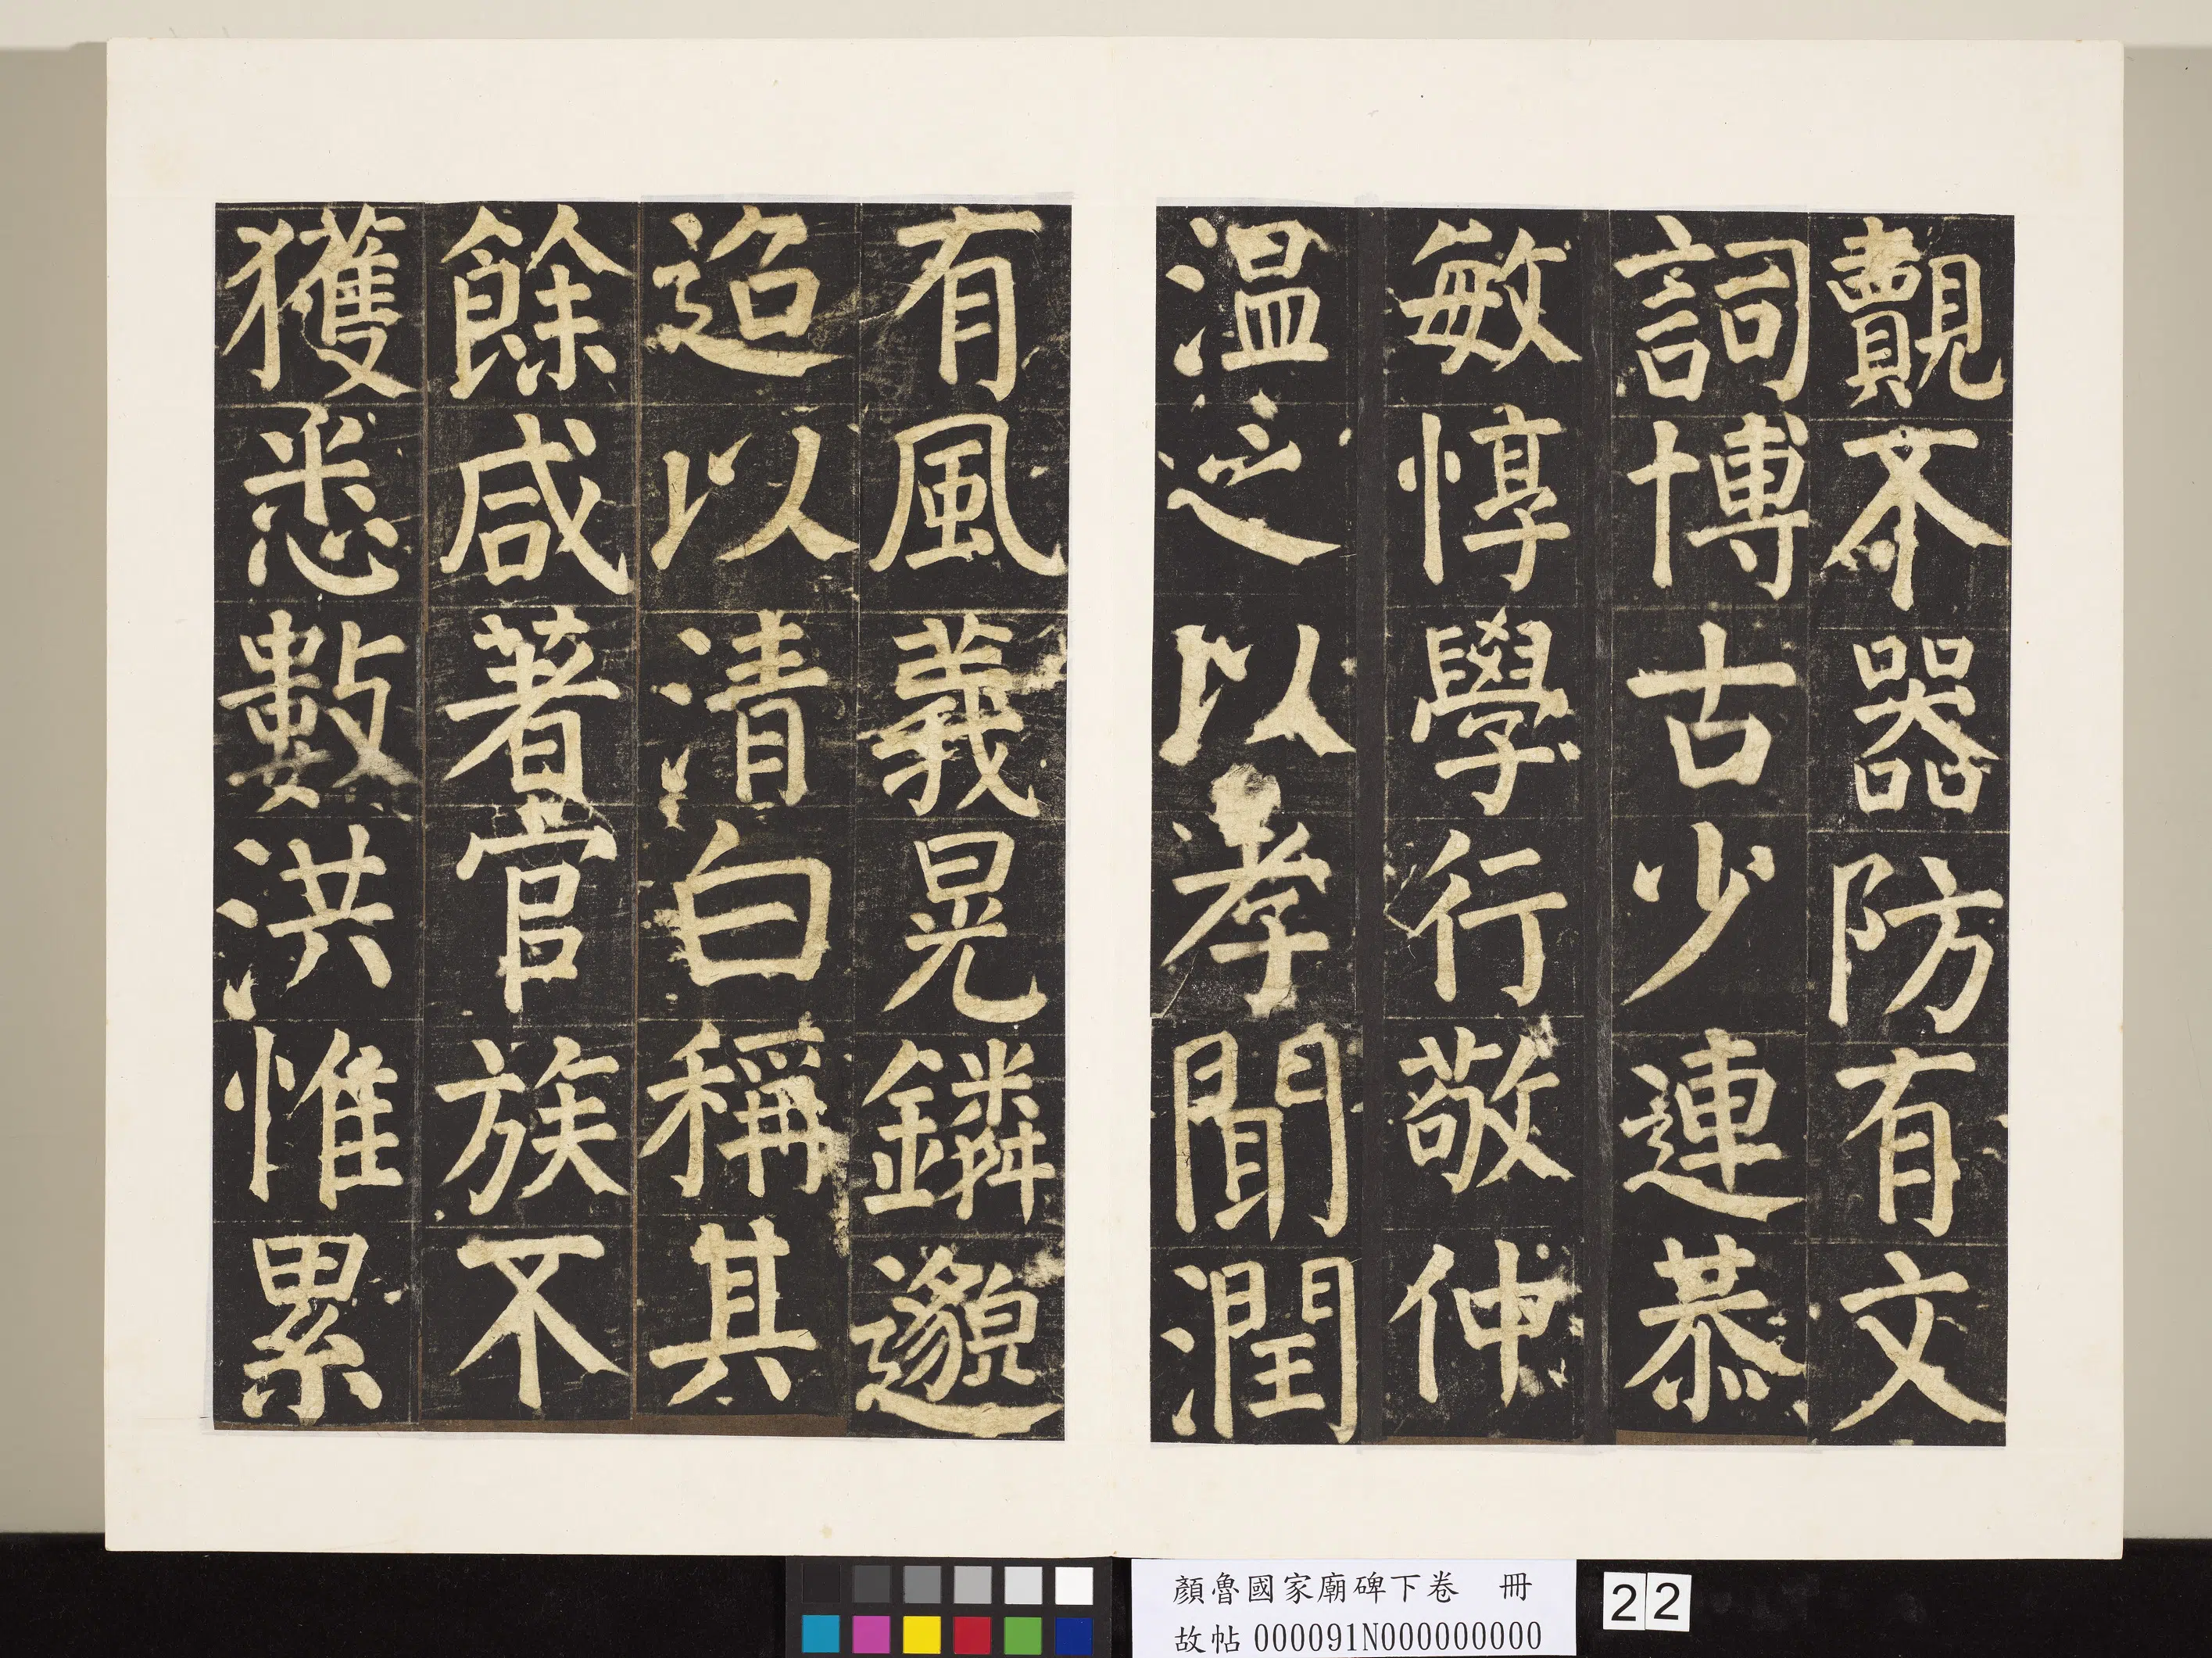 覿不器防有文
詞博古少連恭
敏惇學行敬仲
温之以孝聞潤
有風義晃鏻邈
迢以清白稱其
餘咸著官族不
獲悉數洪惟累
顏魯國家廟碑下卷 冊
故帖000091N000000000
22